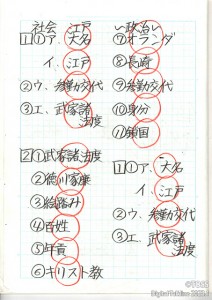 社会 江戸
①①ア、大名
イ、江戸
②ウ、参勤交代
③エ、武家諸
法度
②①武家諸法度
②徳川家康
③絵踏み
④百姓
⑤年貢
⑥キリスト教
い政治
⑦オランダ
⑧長崎
⑨参勤交代
⑩身分
⑪鎖国
①①ア、大名
イ、江戸
②ウ、参勤交代
③エ、武家諸
法度
©TOSS